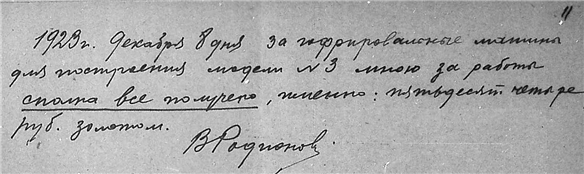 11
1923 г. Декабря 8 дня за гофрировальные машины
для построения модели N 3 мною за работы
сполна все получено, именно: пятьдесят четыре
руб. золотом.
В Родионов.